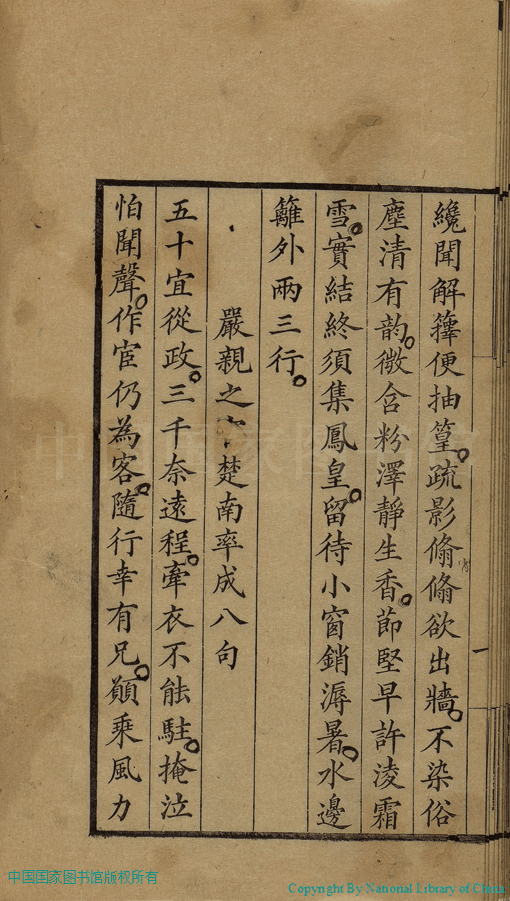 纔聞解籜便抽篁疏影翛翛欲出牆不染俗
塵清有韵微含粉澤靜生香莭堅早許淩霜
雪實結終須集鳳皇留待小窗銷溽暑水邊
籬外兩三行
嚴親之官楚南率成八句
五十宜從政三千奈遠程牽衣不能駐掩泣
怕聞聲作宦仍為客隨行幸有兄願乘風力
一
中国国家图书馆版权所有
Copyright By National Library of China